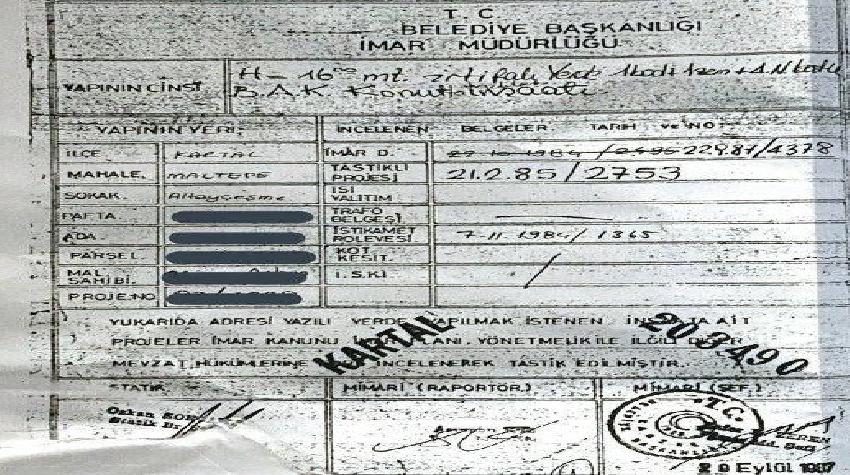 T. C.
BELEDİYE BAŞKANLIĞI
İMAR MÜDÜRLÜĞÜ
YAPININ CİNSİ
H = 16 mt. irtifalı,
B.A.K Konut İnşaatı
YAPININ YERİ: İNCELENEN BELGELER TARİH ve NO
İLÇE KARTAL İMAR D. 22.9.81/4378
MAHALE. MALTEPE TASTİKLİ PROJESİ 21.2.85/2753
SOKAK. Altayçeşme ISI YALITIM
PAFTA TRAFO BELGESİ
ADA. İSTİKAMET ROLEVESİ 7.11.1984/1365
PARSEL. KOT KESİT.
MAL SAHİBİ. İ.S.Kİ
PROJE.NO
YUKARIDA ADRESİ YAZILI YERDE YAPILMAK İSTENEN AİT
PROJELER İMAR KANUNU YÖNETMELİK İLE İLGİLİ
MEVZAT HÜKÜMLERİNE İNCELENEREK TASTİK EDİLMİŞTİR.
KARTAL
203490
STATİK MİMARİ (RAPORTÖR.) MİMARİ (ŞEF.)
T.C.
Eylül 1987